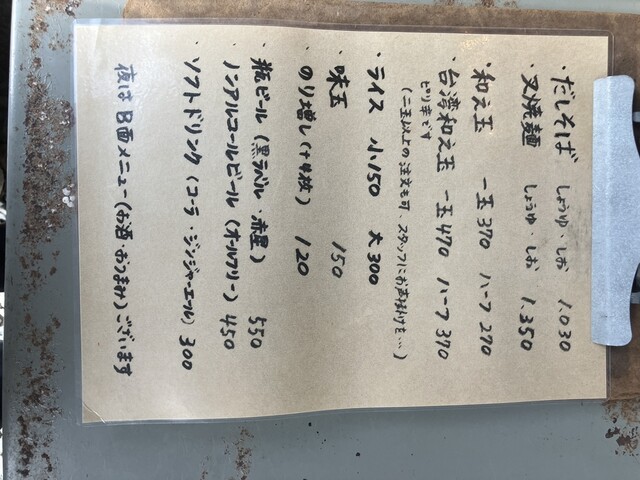 ・だしそば しょうゆ・しお 1.030
・叉焼麺 しょうゆ・しお 1.350
・和え玉 一玉 370 ハーフ 270
・台湾和え玉 一玉 470 ハーフ 370
ピリ辛です
(二玉以上の注文も可、スタッフにお声掛けを…)
・ライス 小150 大300
・味玉 150
・のり増し(+4枚) 120
・瓶ビール(黒ラベル・赤星) 550
・ノンアルコールビール(オールフリー) 450
・ソフトドリンク(コーラ・ジンジャーエール) 300
夜は B面メニュー(お酒・おつまみ)ございます